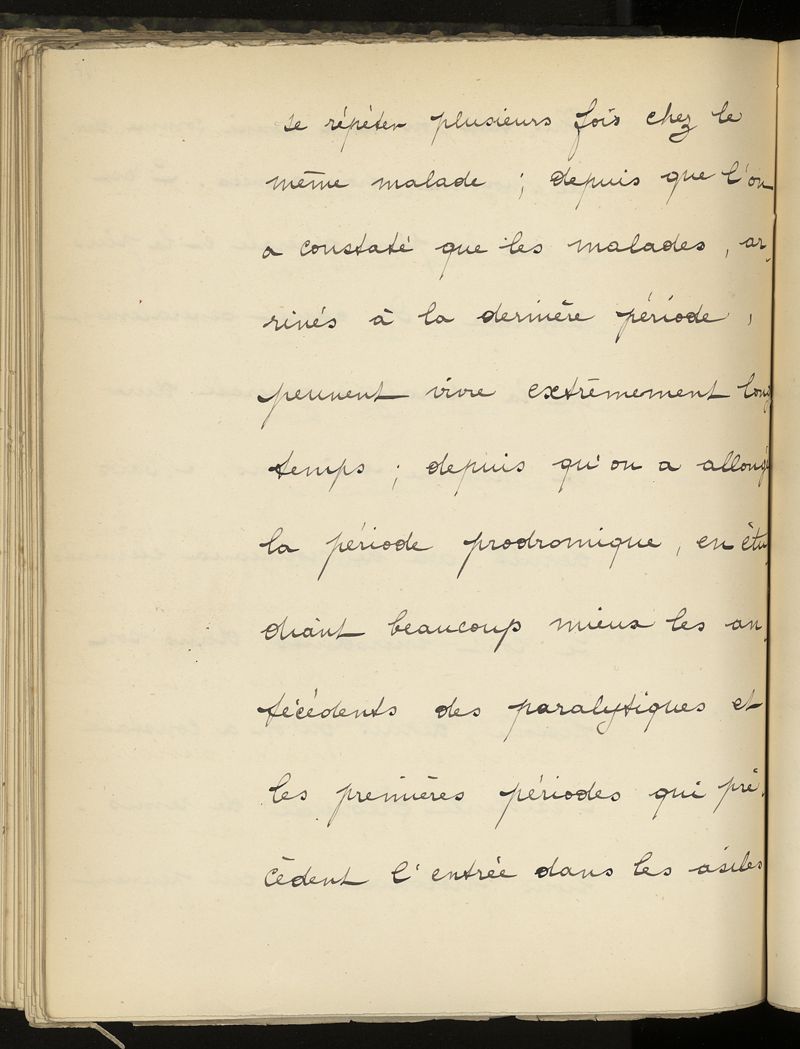 se répéter plusieurs fois chez le
même malade ; depuis que l'on
a constaté que les malades, ar-
rivés à la dernière période,
peuvent vivre extrêmement long
temps ; depuis qu'on a allongé
la période prodromique, en étu
diant beaucoup mieux les an-
técédents des paralytiques et
les premières périodes qui pré-
cèdent l'entrée dans les asiles